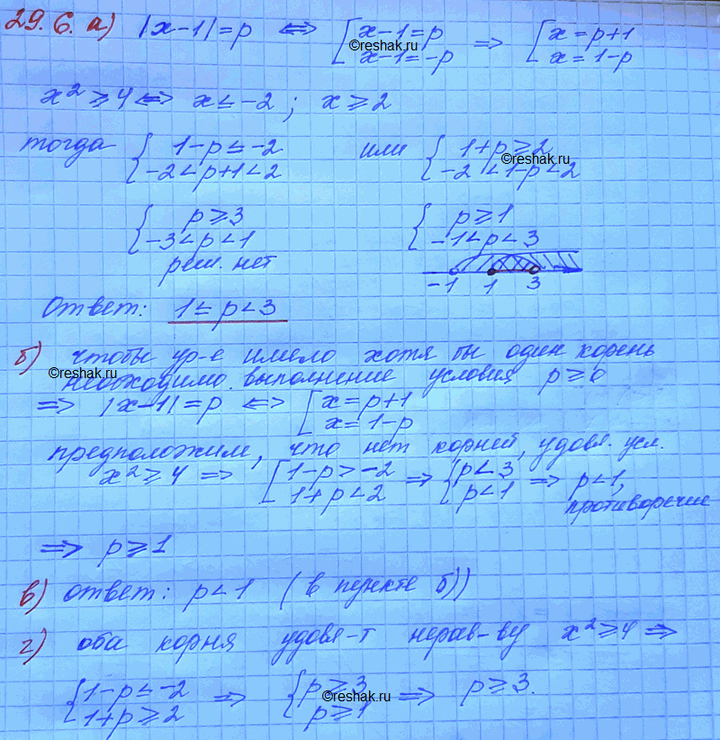 29.6. а) |x-1|=p ⇔ [x-1=p x-1=-p ⇒ [x=p+1 x=1-p
©reshak.ru
x² ≥ 4 ⇔ x ≤ -2 ; x ≥ 2
тогда {1-p ≤ -2 -2 < p+1 < 2 или {1+p ≥ 2 -2 < 1-p < 2
©reshak.ru
{p ≥ 3 -3 < p < 1 {p ≥ 1 -1 < p < 3
реш. нет
-1 1 3
Ответ: 1 ≤ p < 3
б) чтобы ур-е имело хотя бы один корень
©reshak.ru
необходимо выполнение условия p ≥ 0
⇒ |x-1|=p ⇔ [x=p+1 x=1-p
предположим, что нет корней, удовл. усл.
x² ≥ 4 ⇒ [1-p > -2 1+p < 2 ⇒ {p < 3 p < 1 ⇒ p < 1,
противоречие
⇒ p ≥ 1
в) ответ: p < 1 (в пункте б))
г) оба корня удовл-т нерав-ву x² ≥ 4 ⇒
{1-p ≤ -2 1+p ≥ 2 ⇒ {p ≥ 3 p ≥ 1 ⇒ p ≥ 3.
©reshak.ru